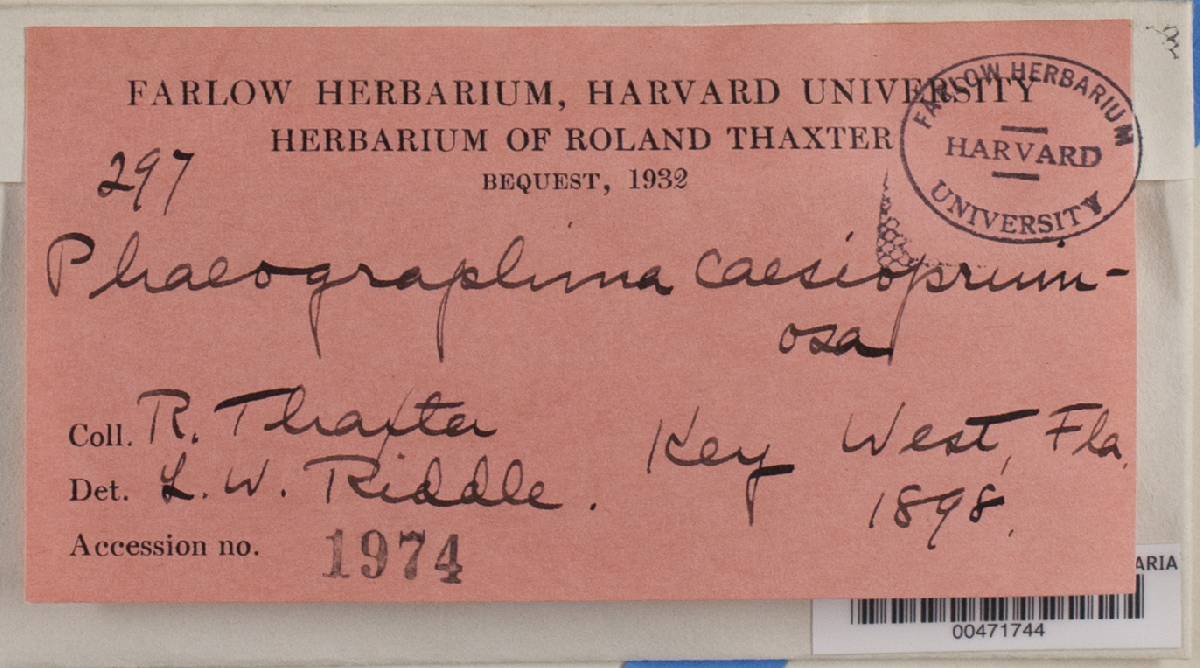 FARLOW HERBARIUM, HARVARD UNIVERSITY
HERBARIUM OF ROLAND THAXTER
BEQUEST, 1932
FARLOW HERBARIUM
HARVARD
UNIVERSITY
297
Phaeographina caesioprum-
osa
Coll. R. Thaxter
Key West, Fla.
Det. L. W. Riddle.
1898.
Accession no. 1974
ARIA
00471744